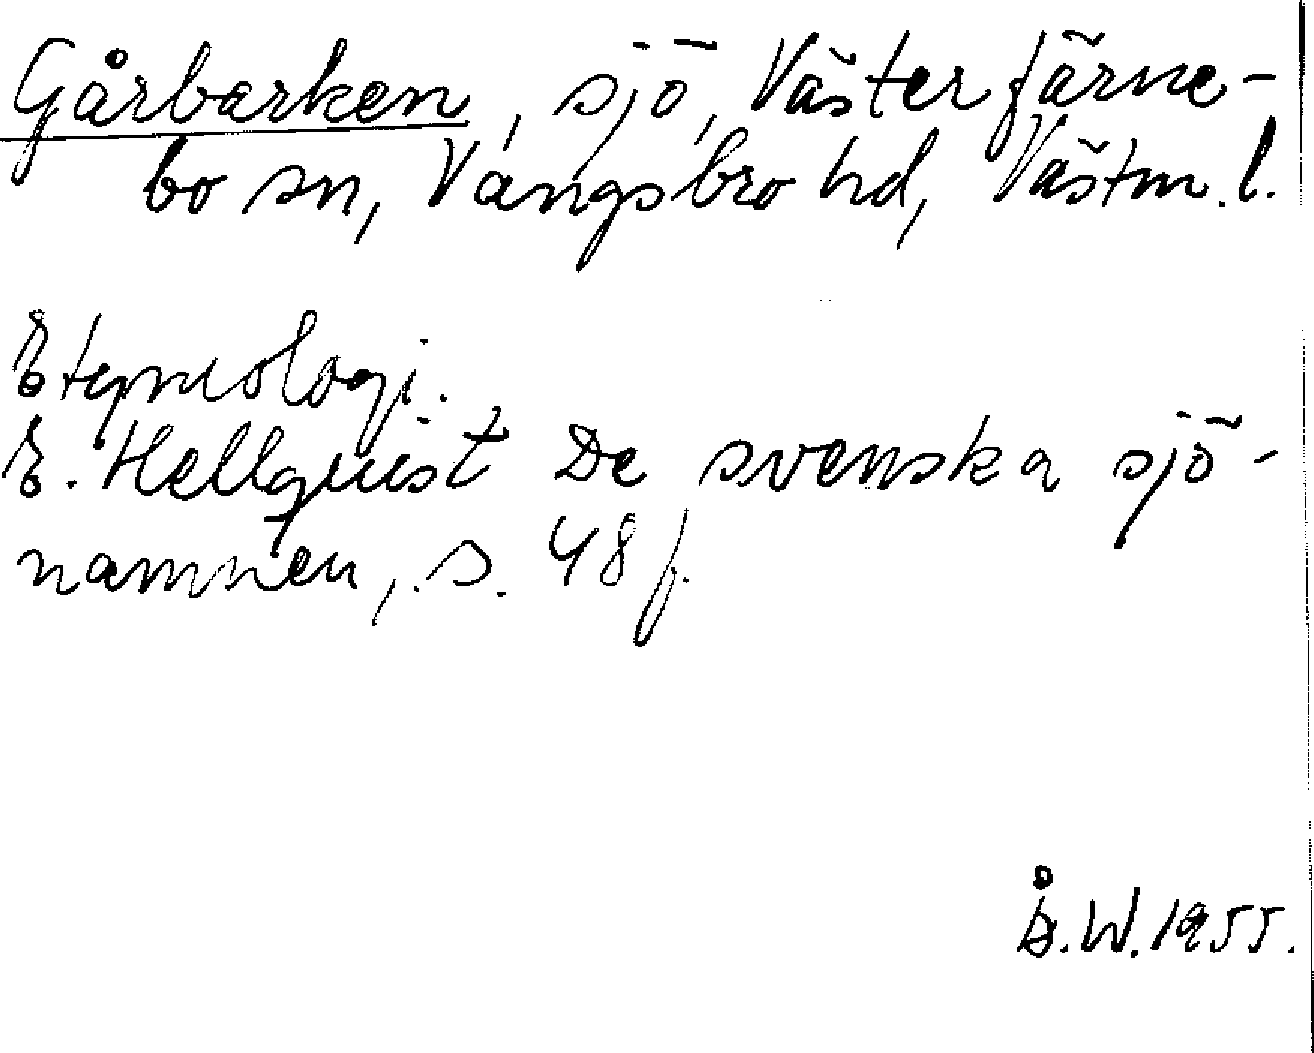 Gårbarken, sjö, Västerfärne-
bo sn, Vangsbro hd, Västm. l.
Etymologi.
E. Hellquist De svenska sjö-
namnen, s. 48 f.
Å. W. 1955.